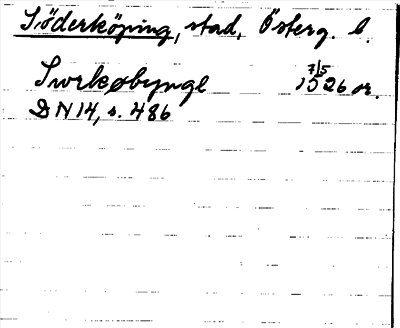 Söderköping, stad, Österg. l.
Swrkøbynge 7/5 1526 or.
DN 14, s. 486